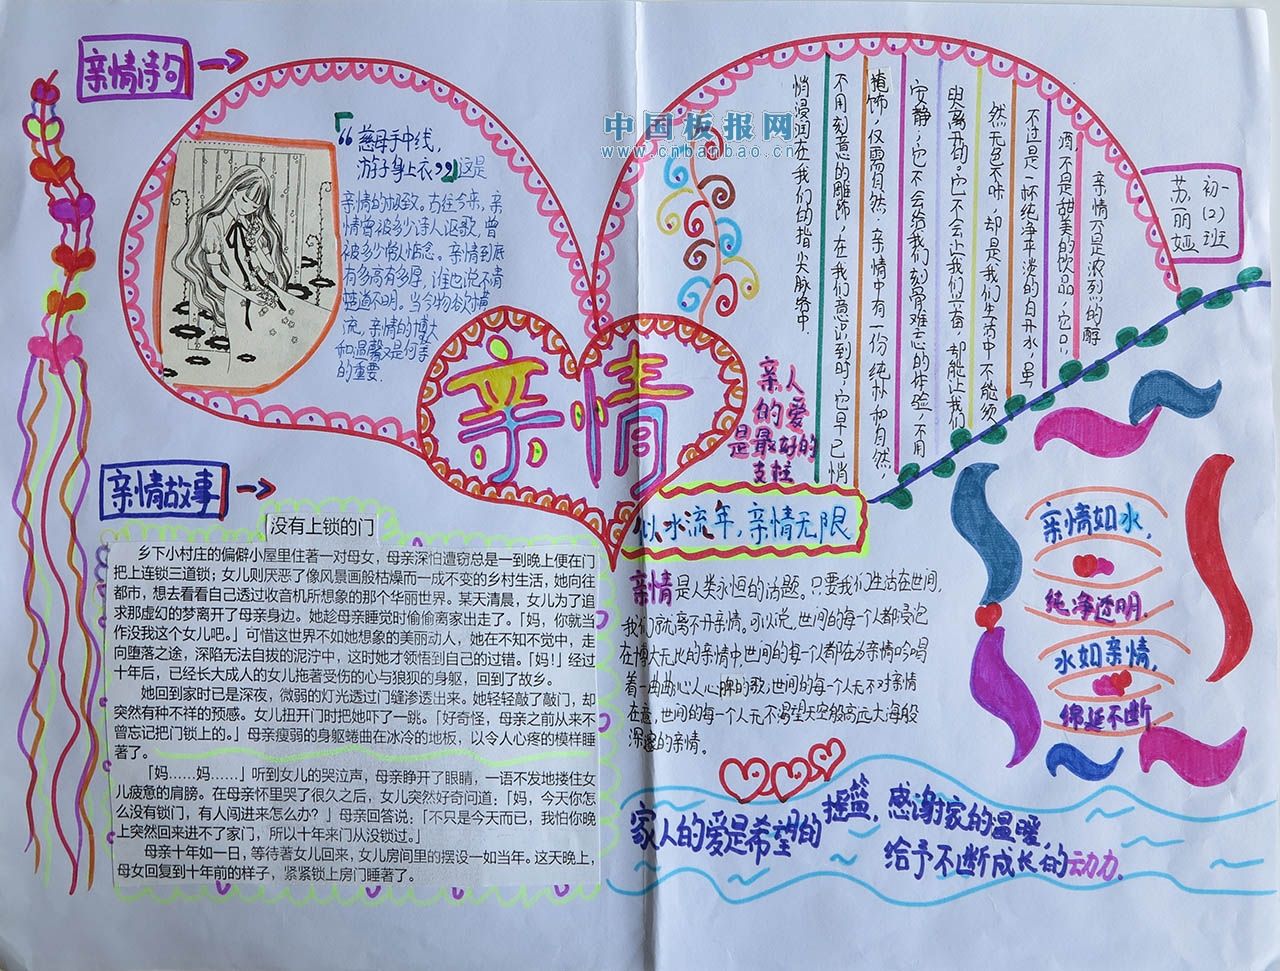 亲情诗句
“慈母手中线,
游子身上衣”这是
亲情的极致。古往今来,亲
情曾被多少诗人讴歌,曾
被多少僧人惦念。亲情到底
有多高有多厚,谁也说不清
道不明。当今物欲横
流,亲情的博大
和温馨又是何等
的重要.
中国板报网
www.cnbanbao.cn
亲情不是浓烈的醇
酒,不是甜美的饮品,它只
不过是一杯纯净平淡的白开水,虽
然无色不味却是我们生活中不能须
臾离开的。它不会让我们兴奋,却能让我们
安静,它不会给我们刻骨难忘的体验,不用
掩饰,仅需自然,亲情中有一份纯朴和自然,
不用刻意的雕饰,在我们意识到时,它早已悄
悄浸润在我们的指尖脉络中.
初一
(2)班
苏丽娅
亲情
亲人
的爱
是最好的
支柱
似水流年,亲情无限
亲情故事
没有上锁的门
乡下小村庄的偏僻小屋里住著一对母女,母亲深怕遭窃总是一到晚上便在门
把上连锁三道锁;女儿则厌恶了像风景画般枯燥而一成不变的乡村生活,她向往
都市,想去看看自己透过收音机所想象的那个华丽世界。某天清晨,女儿为了追
求那虚幻的梦离开了母亲身边。她趁母亲睡觉时偷偷离家出走了。「妈,你就当
作没我这个女儿吧。」可惜这世界不如她想象的美丽动人,她在不知不觉中,走
向堕落之途,深陷无法自拔的泥泞中,这时她才领悟到自己的过错。「妈!」经过
十年后,已经长大成人的女儿拖著受伤的心与狼狈的身躯,回到了故乡。
她回到家时已是深夜,微弱的灯光透过门缝渗透出来。她轻轻敲了敲门,却
突然有种不祥的预感。女儿扭开门时把她吓了一跳。「好奇怪,母亲之前从来不
曾忘记把门锁上的。」母亲瘦弱的身躯蜷曲在冰冷的地板,以令人心疼的模样睡
著了。
「妈……妈……」听到女儿的哭泣声,母亲睁开了眼睛,一语不发地搂住女
儿疲惫的肩膀。在母亲怀里哭了很久之后,女儿突然好奇问道:「妈,今天你怎
么没有锁门,有人闯进来怎么办?」母亲回答说:「不只是今天而已,我怕你晚
上突然回来进不了家门,所以十年来门从没锁过。」
母亲十年如一日,等待著女儿回来,女儿房间里的摆设一如当年。这天晚上,
母女回复到十年前的样子,紧紧锁上房门睡著了。
亲情是人类永恒的话题。只要我们生活在世间,
我们就离不开亲情。可以说,世间的每一个人都浸泡
在博大无比的亲情中,世间的每一个人都在为亲情吟唱
着一曲曲沁人心脾的歌,世间的每一个人无不对亲情
在意,世间的每一个人无不渴望天空般高远大海般
深邃的亲情。
亲情如水,
纯净透明.
水如亲情,
绵延不断
家人的爱是希望的摇篮,感谢家的温暖,
给予不断成长的动力.